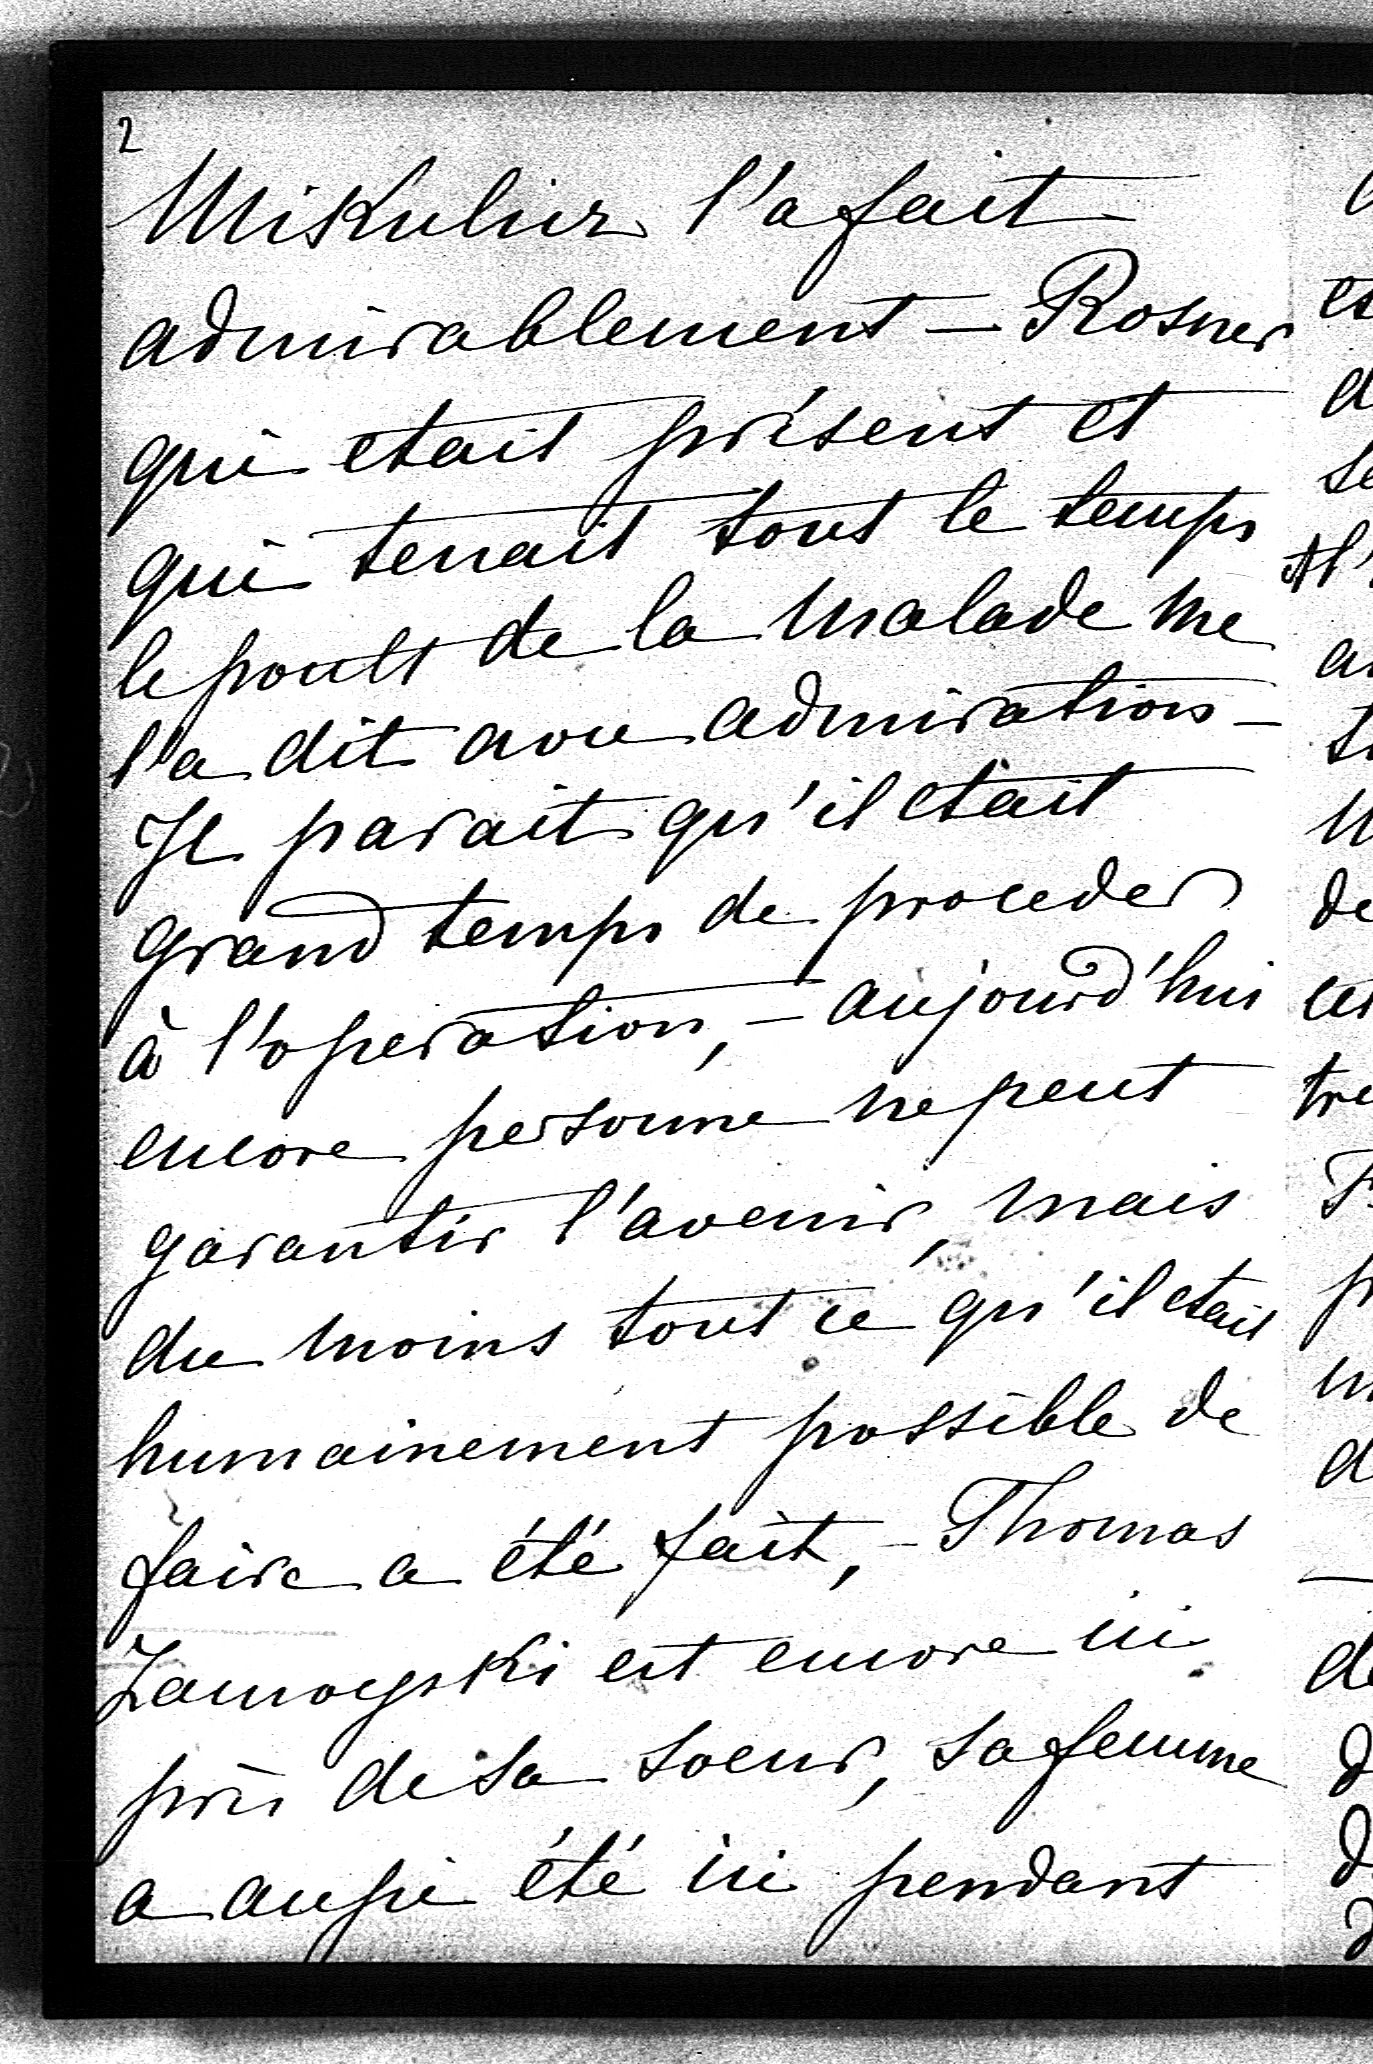 2
Mikulicz l'a fait
admirablement — Rosner
qui etait présent et
qui tenait tout le temps
le poult de la malade me
l'a dit avec admiration —
Il parait qu'il etait
grand temps de proceder
à l'operation, — aujourd'hui
encore personne ne peut
garantir l'avenir, mais
du moins tout ce qu'il etait
humainement possible de
faire a été fait, — Thomas
Zamoyski est encore ici
près de sa soeur, sa femme
a aussi été ici pendant